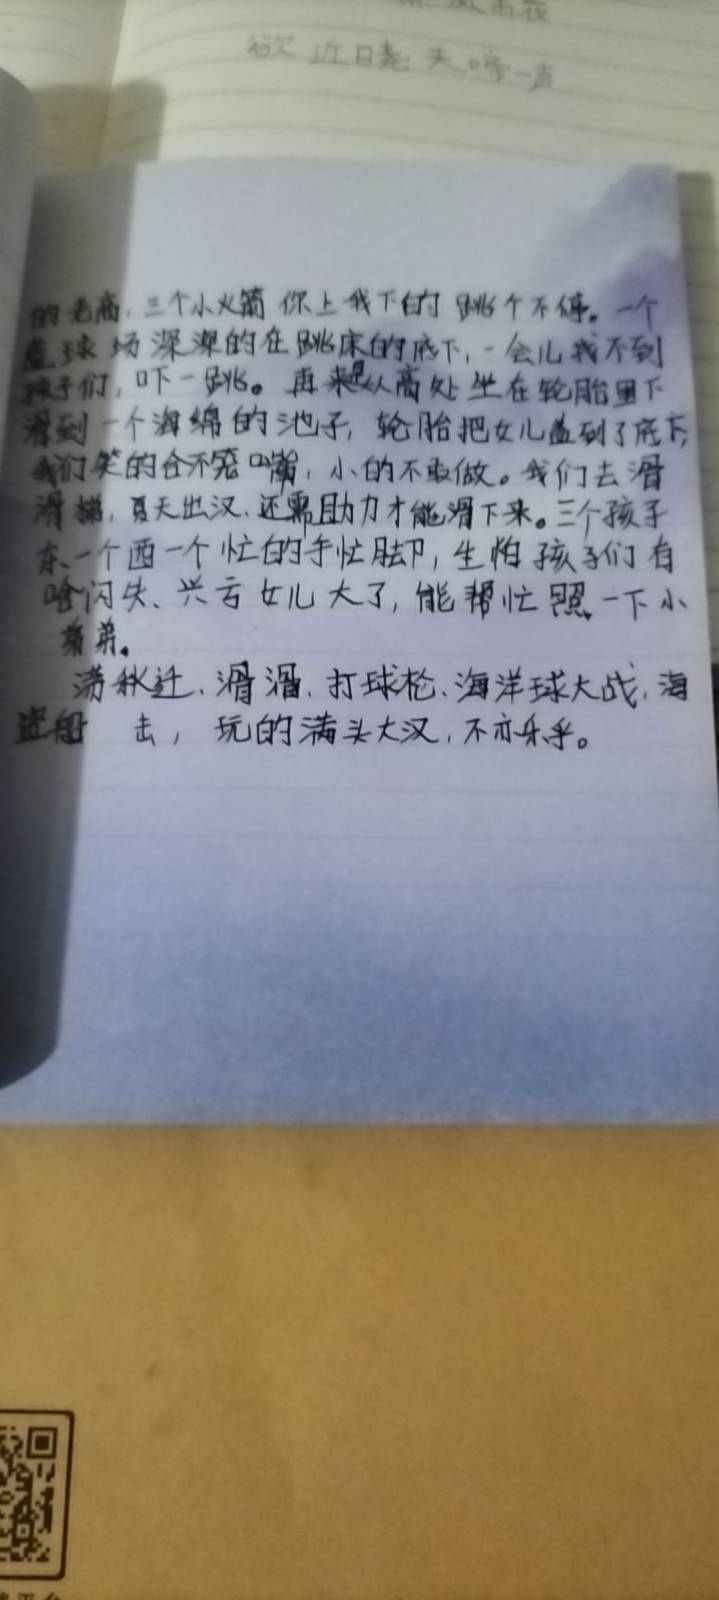 风雨夜
欲 近日尧 天啼一声
的老高，三个小火箭你上我下的跳个不停。一个
篮球场深深的在跳床的底下，一会儿找不到
孩子们，吓一跳。再来从高处坐在轮胎里下
滑到一个海绵的池子，轮胎把女儿盖到了底下，
我们笑的合不笼嘴，小的不敢做。我们去滑
滑梯，夏天出汗、还需助力才能滑下来。三个孩子
东一个西一个忙的手忙脚，生怕孩子们有
啥闪失、兴亏女儿大了，能帮忙照一下小
弟弟。
荡秋迁、滑滑、打球枪、海洋球大战，海
盗船 击，玩的满头大汉，不亦乐乎。